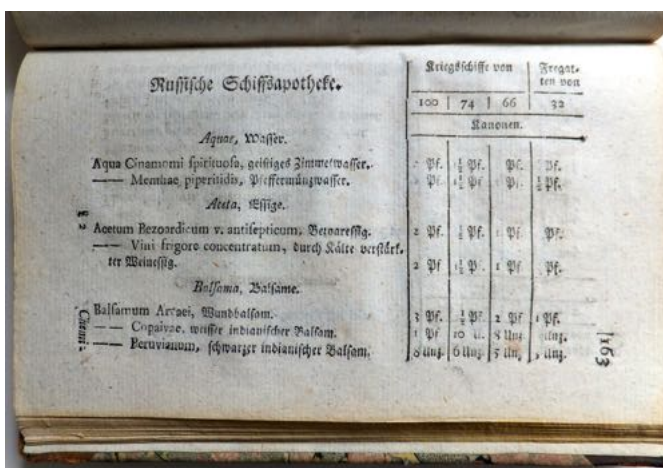 Russische Schiffsapotheke.
Kriegsschiffe von
Fregat-
ten von
100 | 74 | 66 | 32
Kanonen.
Aquae, Wasser.
Aqua Cinamomi spirituosa, geistiges Zimmetwasser. Pf. ½ Pf. Pf. Pf.
—— Menthae piperitidis, Pfeffermünzwasser. Pf. ½ Pf. Pf. ½ Pf.
Aceta, Essige.
Acetum Bezoardicum v. antisepticum, Bezoaressig. 2 Pf. ½ Pf. Pf. Pf.
—— Vini frigore concentratum, durch Kälte verstärk-
ter Weinessig. 2 Pf ½ Pf. 1 Pf Pf.
Balsama, Balsame.
Balsamum Arcaei, Wundbalsam. 3 Pf. ½ Pf. 2 Pf 1 Pf.
—— Copaivae, weisser indianischer Balsam. 1 Pf 10 U. 8 Unz Unz.
—— Peruvianum, schwarzer indianischer Balsam. 8 Unz. 6 Unz. 5 Un. Unz.
163